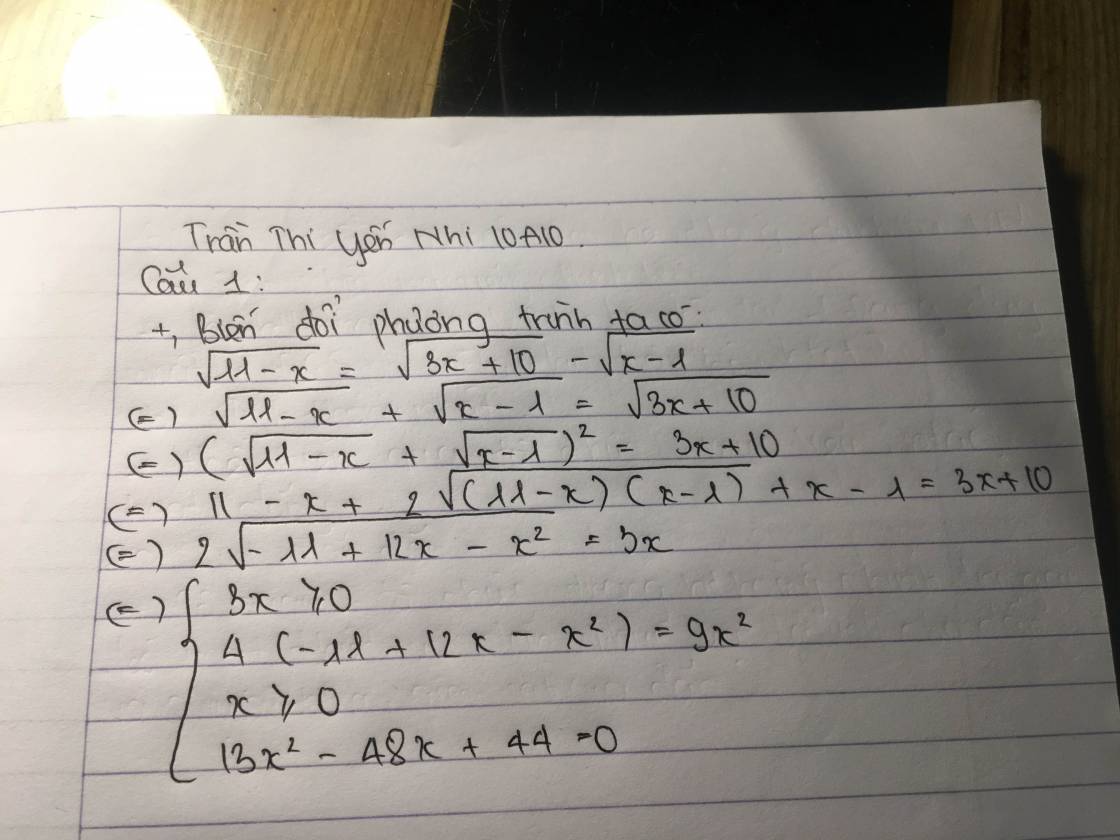 Trần Thị Yến Nhi 10A10.
Câu 1:
+, Biến đổi phương trình ta có:
√(11 - x) = √(3x + 10) - √(x - 1)
(=) √(11 - x) + √(x - 1) = √(3x + 10)
(=) (√(11 - x) + √(x - 1))² = 3x + 10
(=) 11 - x + 2√((11 - x)(x - 1)) + x - 1 = 3x + 10
(=) 2√(-11 + 12x - x²) = 3x
(=) { 3x ⩾ 0
4 (-11 + 12x - x²) = 9x²
x ⩾ 0
13x² - 48x + 44 = 0